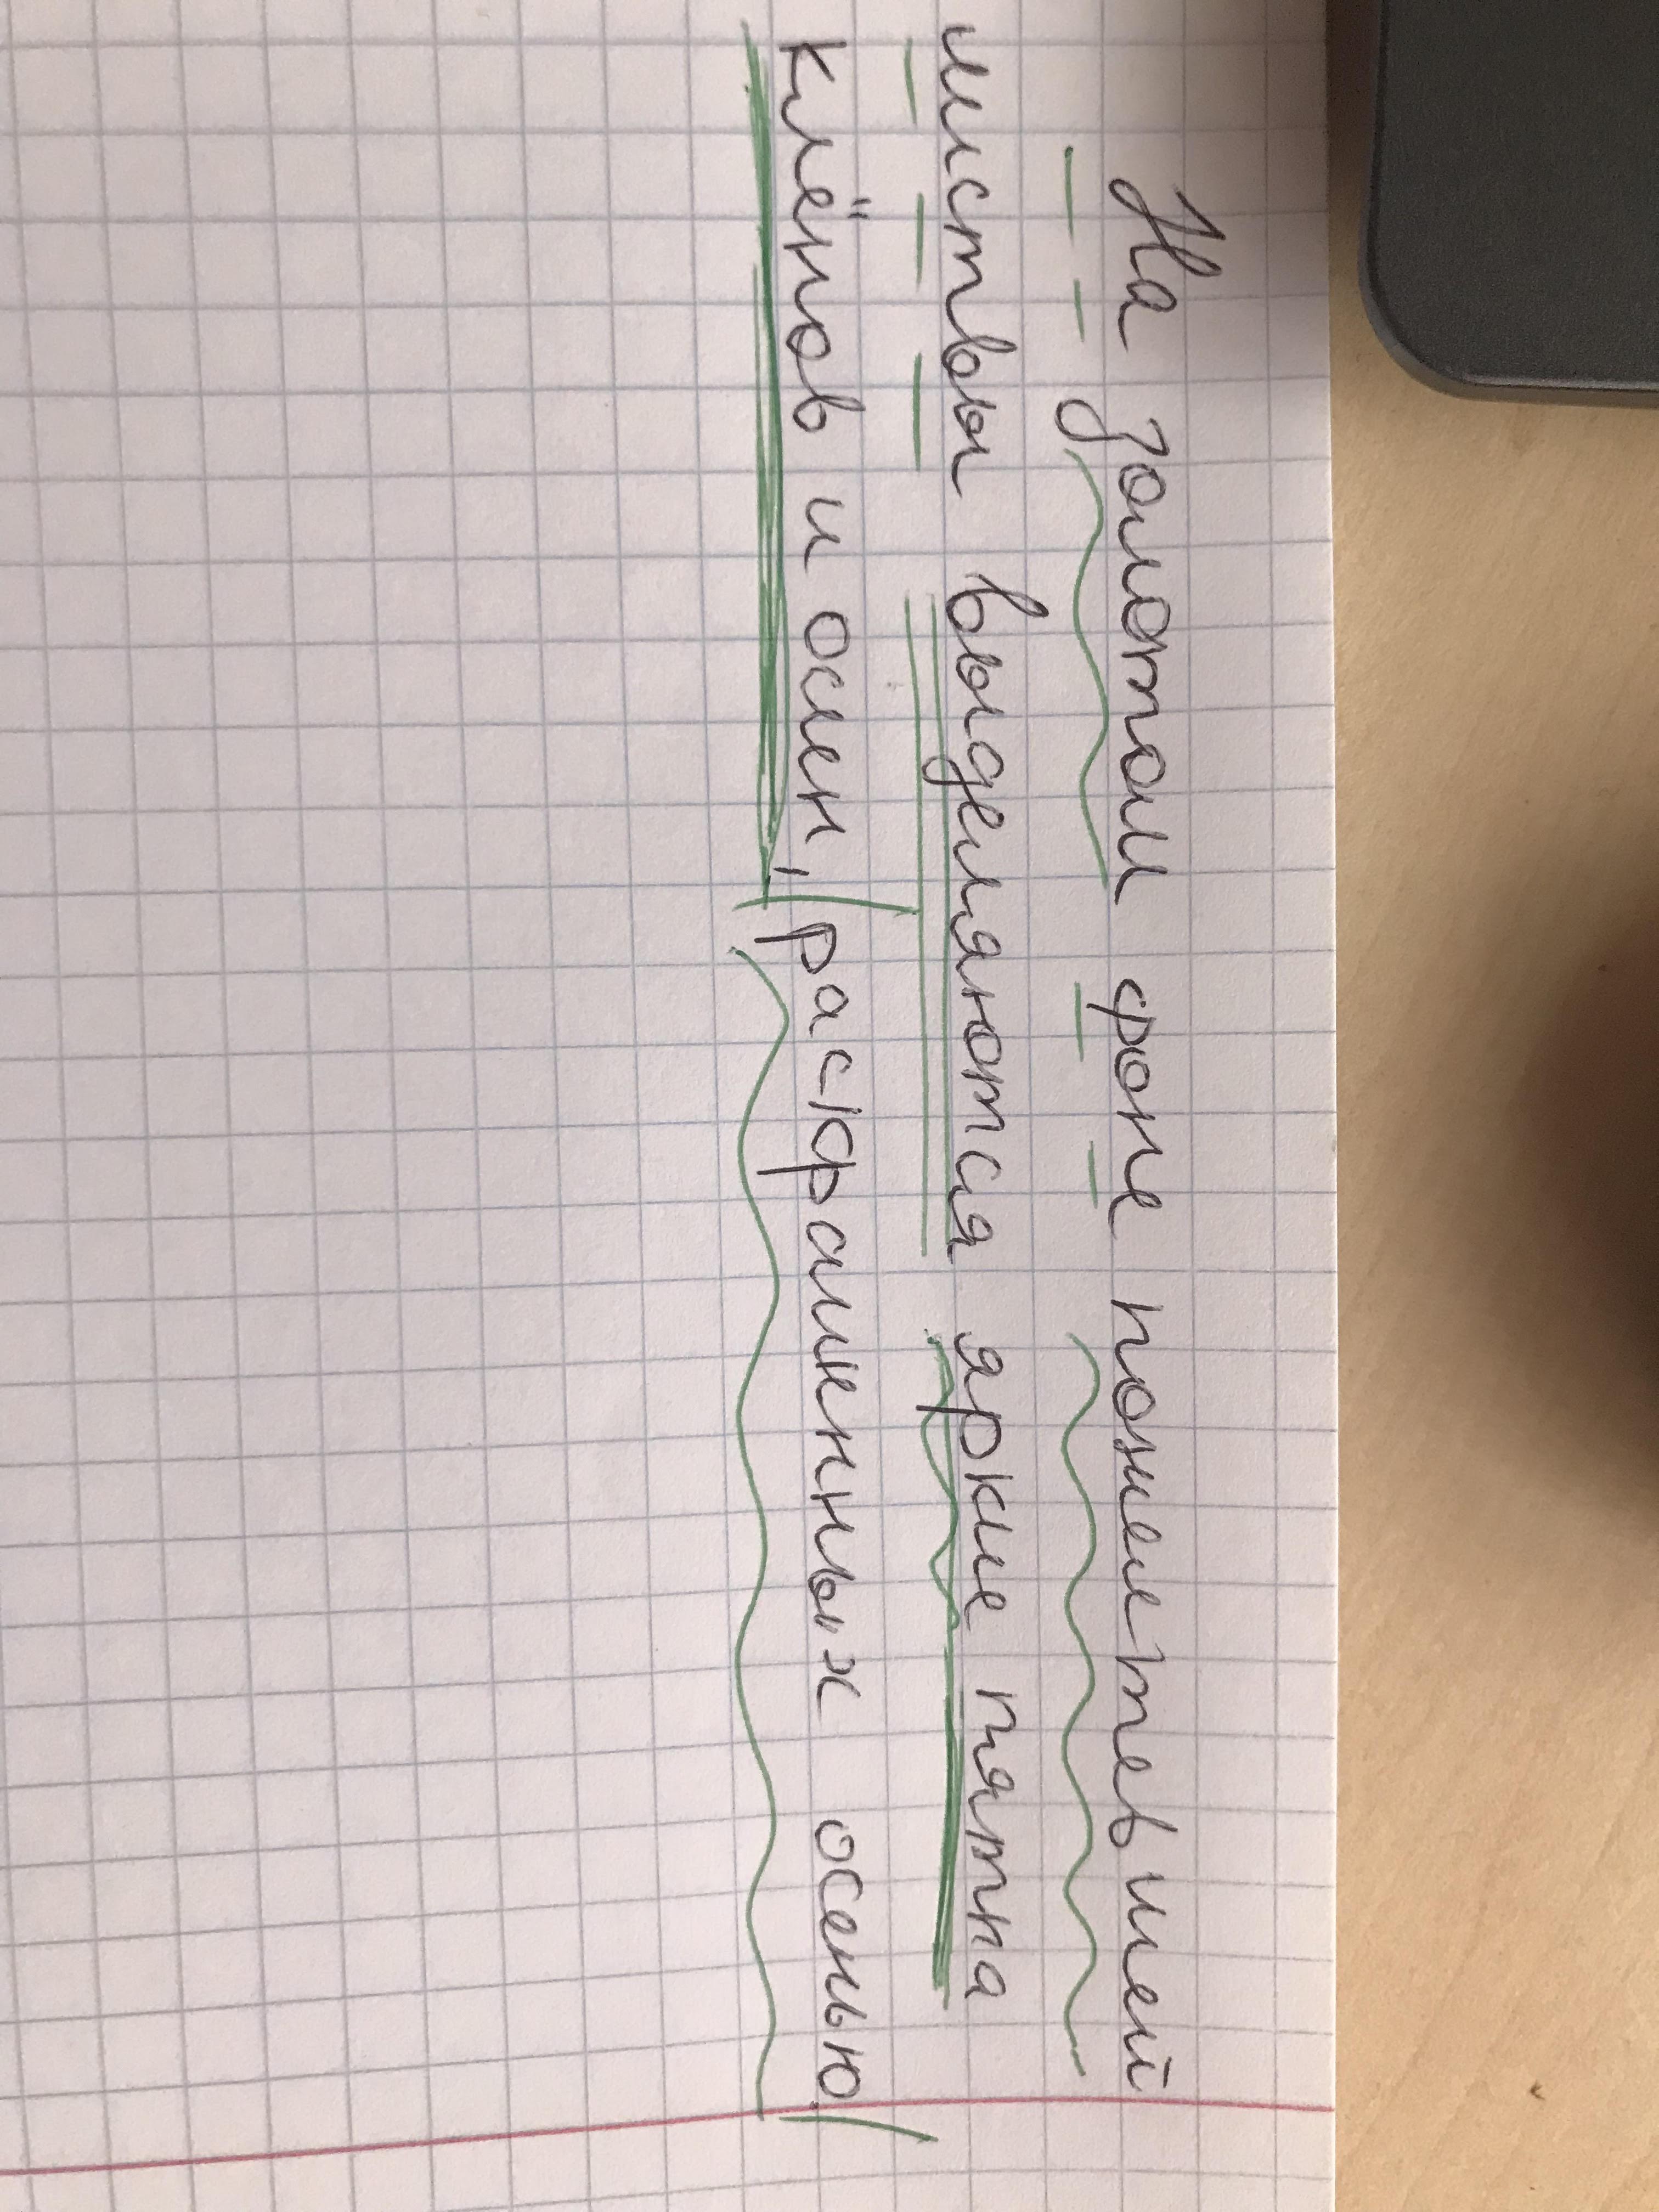 На золотом фоне пожелтевшей
листвы выделяются яркие пятна
клёнов и осин, раскрашенных осенью.